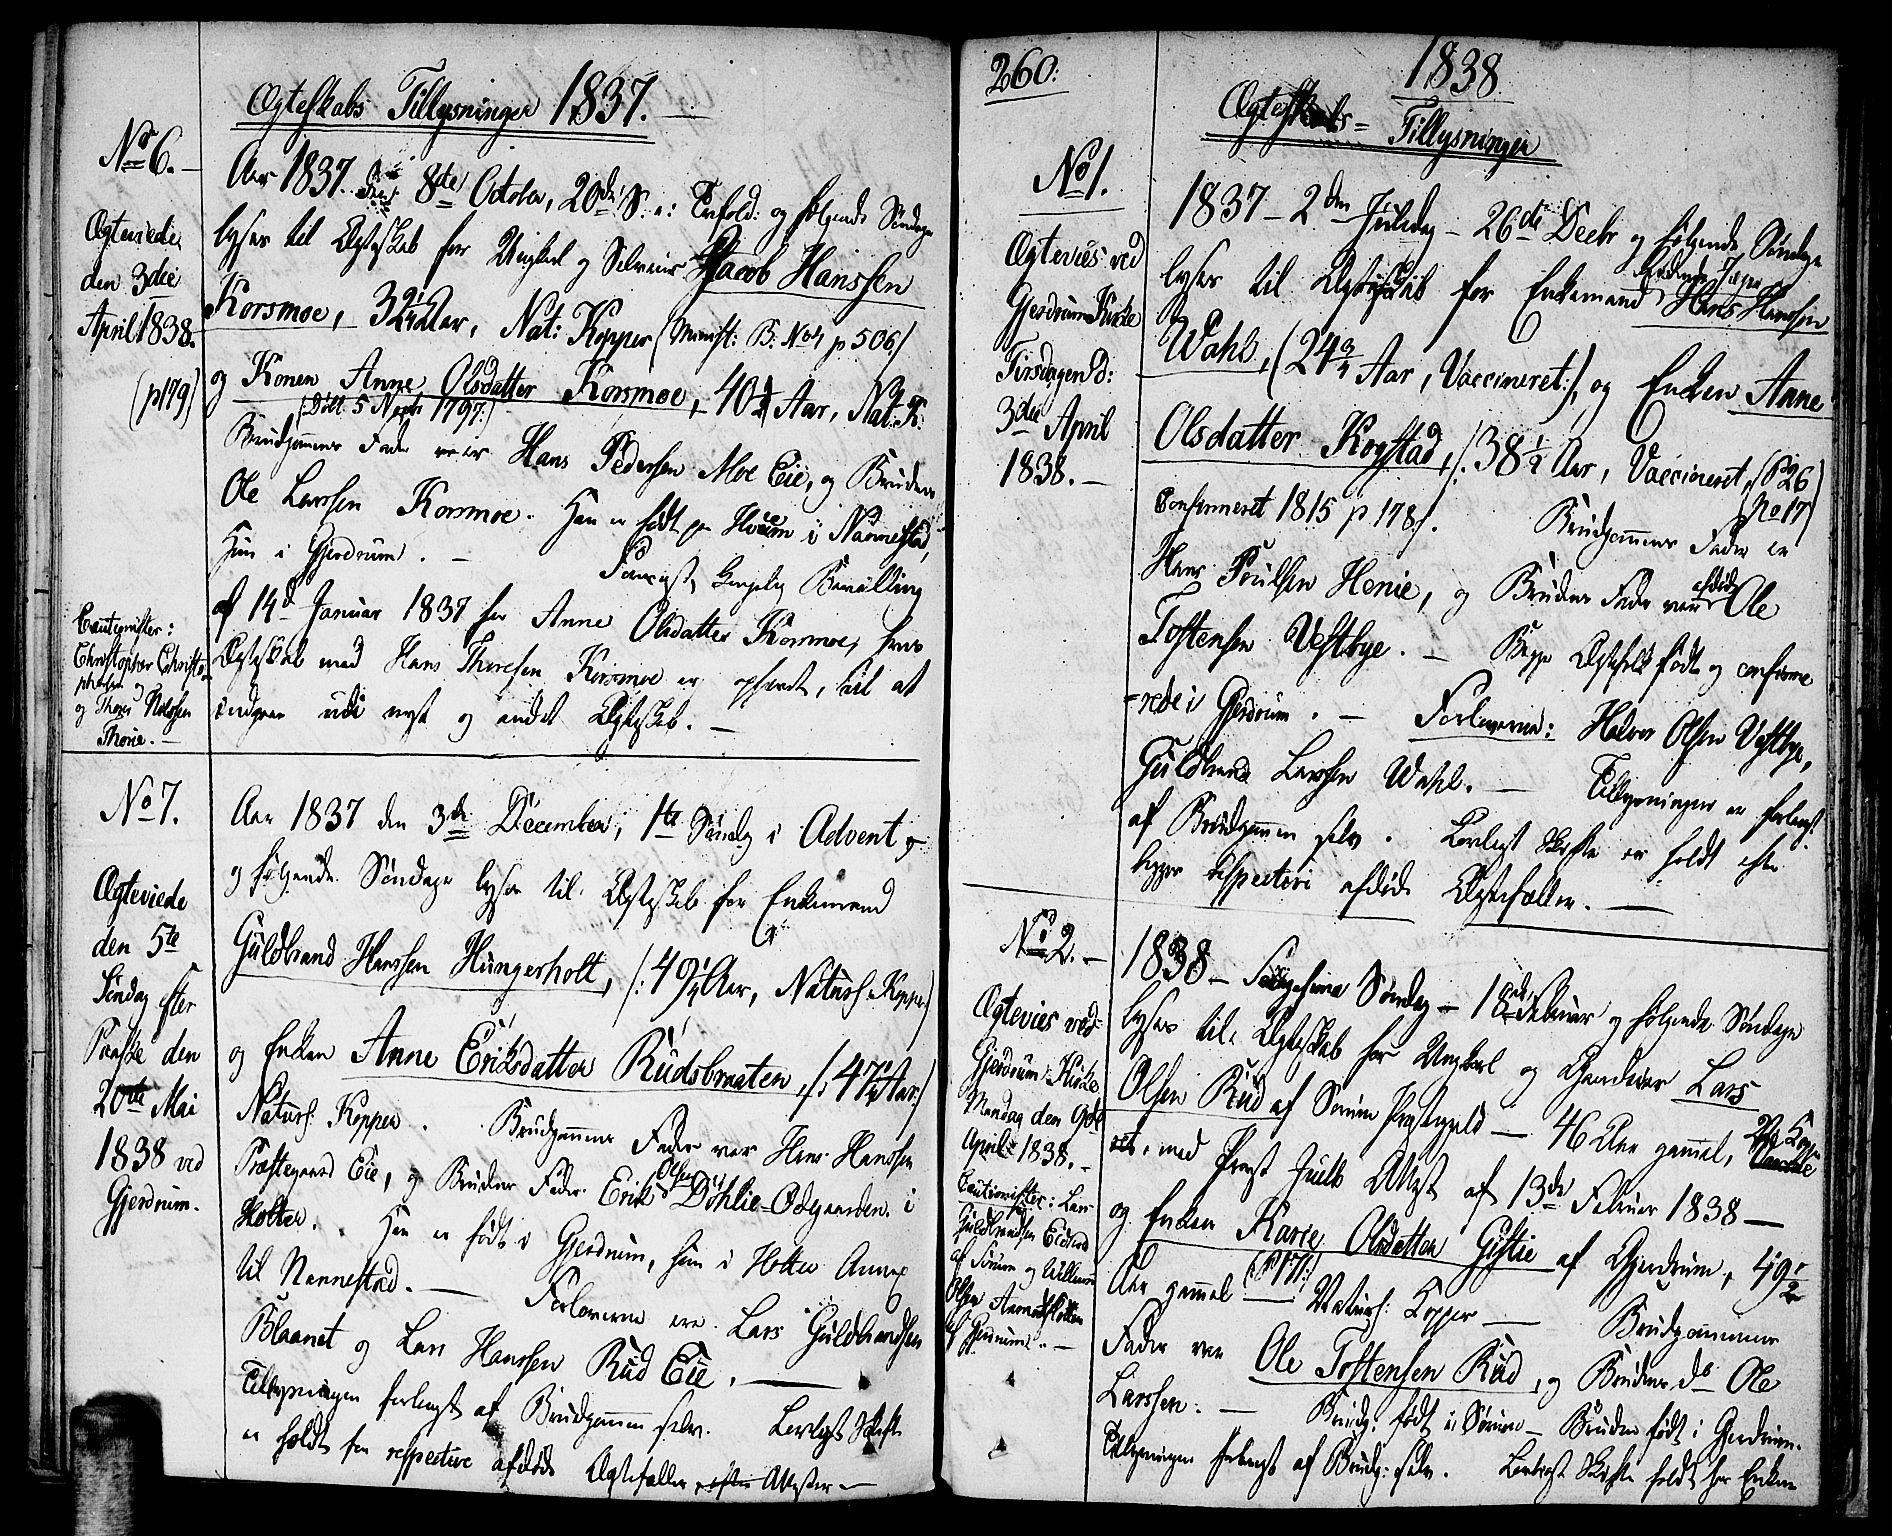 Ægteskabs Tillysninger 1837.
No 6.
Ægteviede
den 3die
April 1838.
(p 179)
Aar 1837. den 8de October, 20de S. e: Trefold: og følgende Søndage
lyses til Ægteskab for Ungkarl og Selveier Jacob Hanssen
Korsmoe, Aar, Nat: Kopper (Minist: B: No 4 p 506)
og Konen Anne Olsdatter Korsmoe, 40 Aar, Nat: K:
(Døbt 5 Novbr 1797.)
Brudgommens Fader er Hans Pedersen Moe Eie, og Brudens
Ole Larssen Korsmoe. Han er født paa i Nannestad,
Hun i Gjerdrum. — kongelig Bevilling
af 14de Januar 1837 for Anne Olsdatter Korsmoe, hvis
Ægteskab med Hans Thoresen Korsmoe er ophævet, til at
indgaae udi nyt og andet Ægteskab. —
Cautionister:
Christopher Christo-
phersen
og Thore Nielssen
Thorie. —
No 7.
Ægteviede
den 5te
Søndag efter
Paaske den
20de Mai
1838 ved
Gjerdrum.
Aar 1837 den 3die December, 1te Søndag i Advent
og følgende Søndage lyses til Ægteskab for Enkemand
Guldbrand Hanssen Hungerholt, (: 49 Aar, Naturl: Kopper)
og Enken Anne Eriksdatter Rudsbraaten, (: 47 Aar:)
Naturl: Kopper. Brudgommens Fader var Hans Hanssen
Præstegaard Eie, og Brudens Fader Erik Olsen Döhlie-Ødegaarden i
Holter. Han er født i Gjerdrum, hun i Holter Annex
til Nannestad. — Forloverne ere Lars Guldbrandsen
Blaanet og Lars Hanssen Rud Eie. —
Tillysningen forlangt af Brudgommen selv. Lovligt Skifte
er holdt for respective afdøde Ægtefæller efter Attester —
260:
1838
Ægteskabs= Tillysninger
No 1.
Ægtevies ved
Gjerdrum Kirke
Tirsdagen d:
3die April
1838. —
1837 — 2den Juledag — 26de Decbr og følgende Søndage
lyses til Ægteskab for Enkemand Jæger Hans Hanssen
Wahl, (24 3/4 Aar, Vaccineret:), og Enken Anne
Olsdatter Kogstad, (: 38 1/2 Aar, Vaccineret, (P 26
No 17)
Confirmeret 1815 p 178). Brudgommens Fader er
Hans Poulsen Henie, og Brudens Fader var afdøde Ole
Tostensen Vestbye. — Begge Ægtefolk født og confirme
=rede i Gjerdrum. — Forloverne: Halvor Olsen Vestbye,
Guldbrand Larssen Wahl. — Tillysningen er forlangt
af Brudgommen selv. Lovligt Skifte er holdt efter
begges respective afdøde Ægtefæller. —
No 2. —
Ægtevies ved
Gjerdrum Kirke
Mandag den 9de
April 1838. —
Cautionister: Lars
Guldbrandsen
af Sørum og
Olsen
af Gjerdrum. —
1838 — Søndag — 18de Februar og følgende Søndage
lyses til Ægteskab for Ungkarl og Gaardeier Lars
Olsen Rud af Sørum Præstegjeld — 46 Aar gammel,
med Attest af 13de Februar 1838 —
og Enken Karie Olsdatter Gistie af Gjerdrum, 49 1/2
Aar gammel (P 171:) Naturl: Kopper — Brudgommens
Fader var Ole Tostensen Rud, og Brudens do Ole
Larssen. — Brudg: født i Sørum — Bruden født i Gjerdrum.
Tillysningen forlangt af Brudg: selv. Lovligt Skifte holdt for Enken